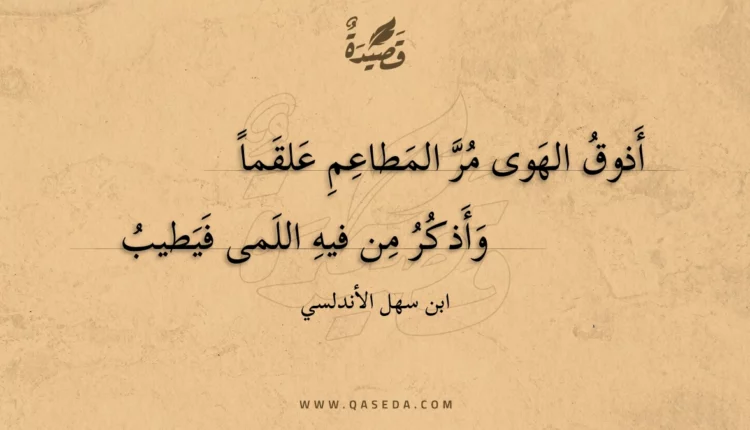 قَصِيْدَةٌ
أَذوقُ الهَوى مُرَّ المَطاعِمِ عَلقَماً
وَأَذكُرُ مِن فيهِ اللَمى فَيَطيبُ
ابن سهل الأندلسي
WWW.QASEDA.COM